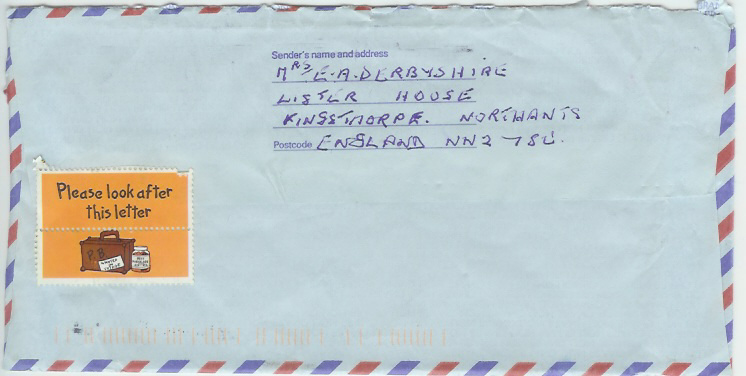 Sender's name and address
MRS E.A.DERBYSHIRE
LISTER HOUSE
KINGSTHORPE. NORTHANTS
Postcode ENGLAND NN2 7SU.
Please look after
this letter
P.B
WANTED